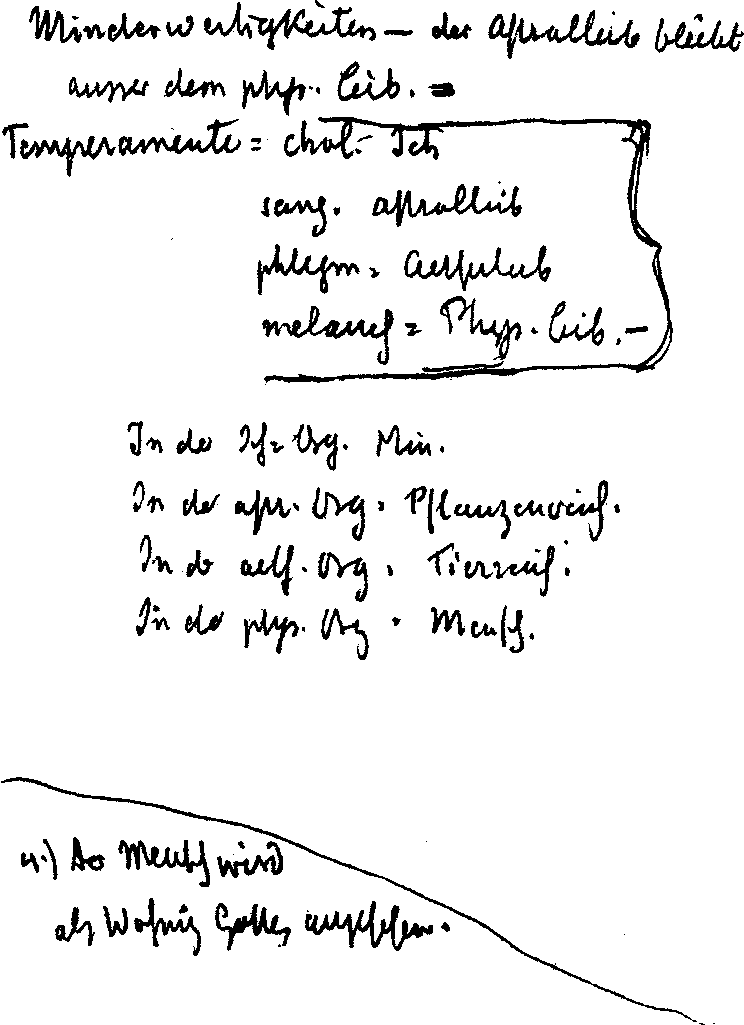 Minderwertigkeiten – der Astralleib bleibt
ausser dem phys. Leib. =
Temperamente = chol. – Ich
sang. Astralleib
phlegm = Aetherleib
melanch = Phys. Leib. –
In der Ich = Org. Min.
In der astr. Org. Pflanzenreich.
In der aeth. Org. Tierreich.
In der phys. Org. Mensch.
4.) Der Mensch wird
als Wohnung Gottes angesehen.